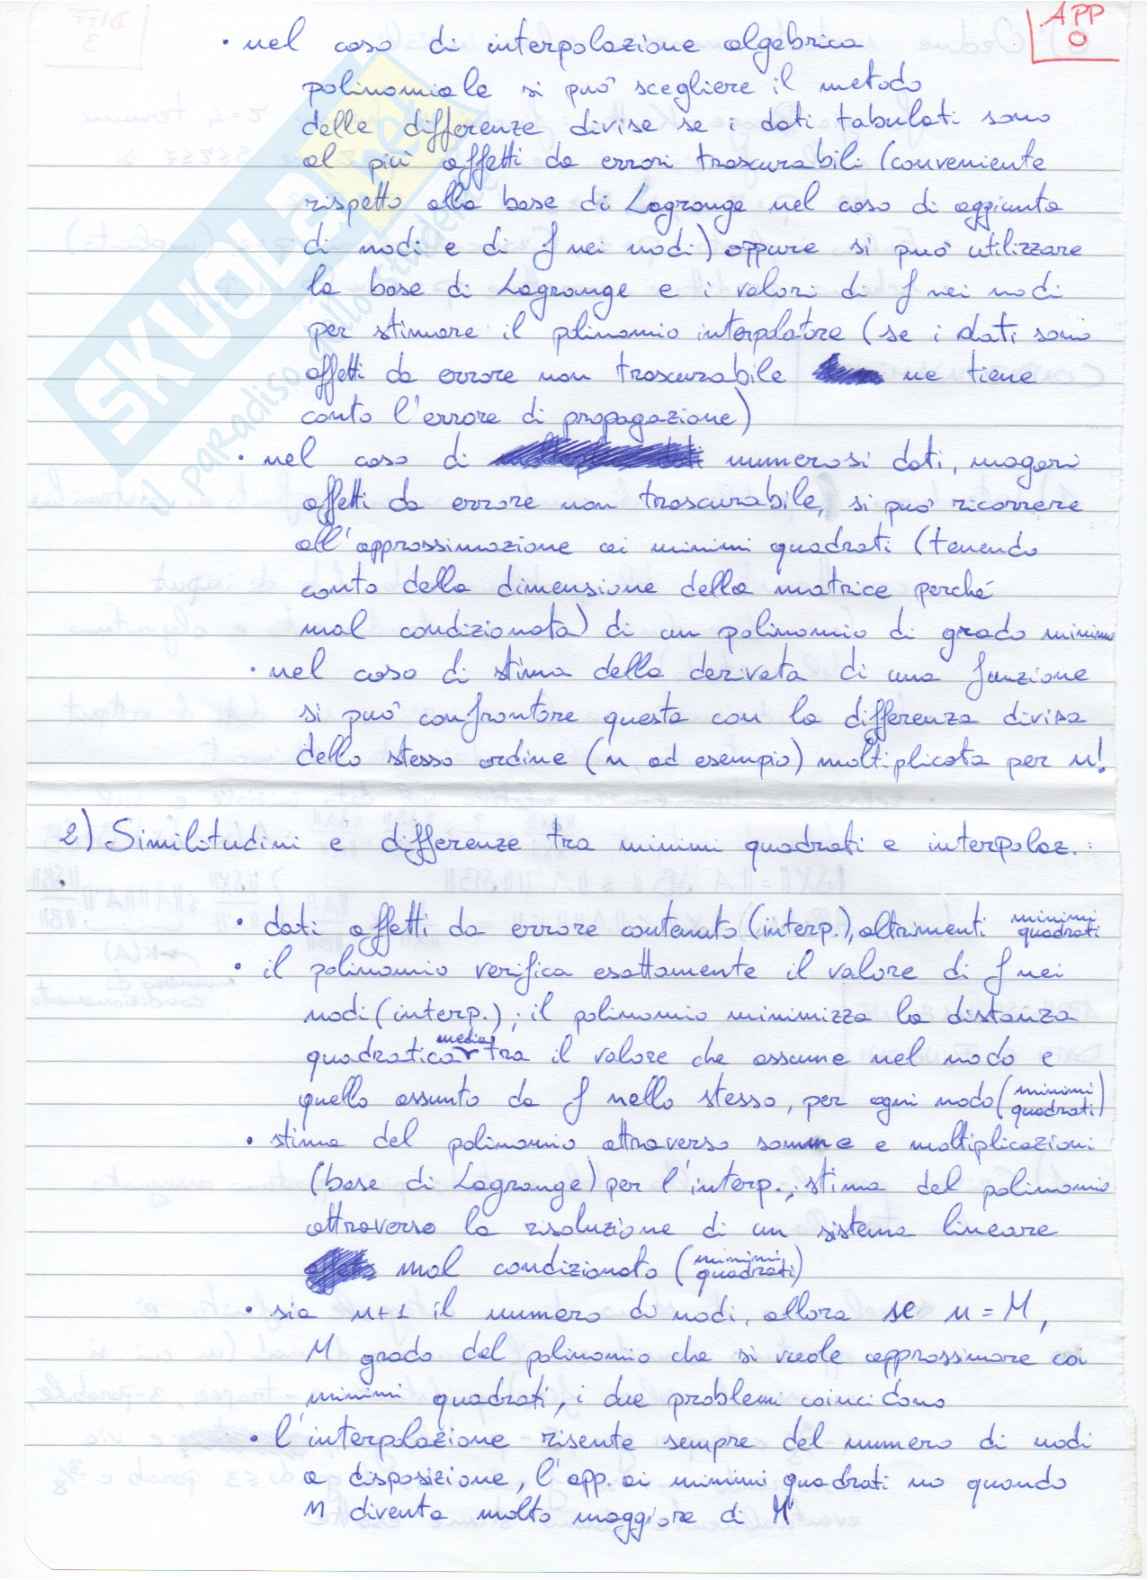 APP
0
• nel caso di interpolazione algebrica
polinomiale si può scegliere il metodo
delle differenze divise se i dati tabulati sono
al più affetti da errori trascurabili (conveniente
rispetto alla base di Lagrange nel caso di aggiunta
di nodi e di f nei nodi) oppure si può utilizzare
la base di Lagrange e i valori di f nei nodi
per stimare il polinomio interpolatore (se i dati sono
affetti da errore non trascurabile ne tiene
conto l'errore di propagazione)
• nel caso di numerosi dati, magari
affetti da errore non trascurabile, si può ricorrere
all'approssimazione ai minimi quadrati (tenendo
conto della dimensione della matrice perché
mal condizionata) di un polinomio di grado minimo
• nel caso di stima della derivata di una funzione
si può confrontare questa con la differenza divisa
dello stesso ordine (n, ad esempio) moltiplicata per n!
2) Similitudini e differenze tra minimi quadrati e interpolaz.:
• dati affetti da errore contenuto (interp.), altrimenti minimi quadrati
• il polinomio verifica esattamente il valore di f nei
nodi (interp.); il polinomio minimizza la distanza
quadratica media tra il valore che assume nel nodo e
quello assunto da f nello stesso, per ogni nodo (minimi quadrati)
• stima del polinomio attraverso somme e moltiplicazioni
(base di Lagrange) per l'interp.; stima del polinomio
attraverso la risoluzione di un sistema lineare
mal condizionato (minimi quadrati)
• sia n+1 il numero di nodi, allora se n = M,
M grado del polinomio che si vuole approssimare coi
minimi quadrati, i due problemi coincidono
• l'interpolazione risente sempre del numero di nodi
a disposizione, l'app. ai minimi quadrati no quando
n diventa molto maggiore di M
SKUOLA
il paradiso dello studente